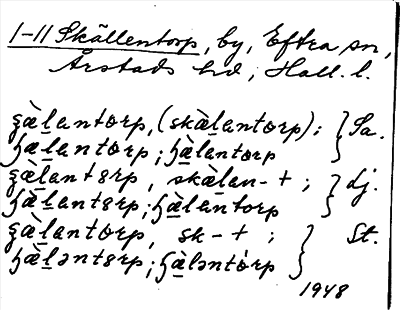 1-11 Skällentorp, by, Eftra sn,
Årstads hd, Hall. l.
ʒæ̀lantorp, (skæ̀lantorp); } Sa.
ɧæ̀lantorp; ɧæ̀lantorp
ʒæ̀lantɵrp, skæ̀lan-t; } dj.
ɧæ̀lantɵrp; ɧæ̀lantorp
ʒæ̀lantorp, sk-t; } St.
ɧæ̀ləntɵrp; ɧæ̀ləntòrp
1948